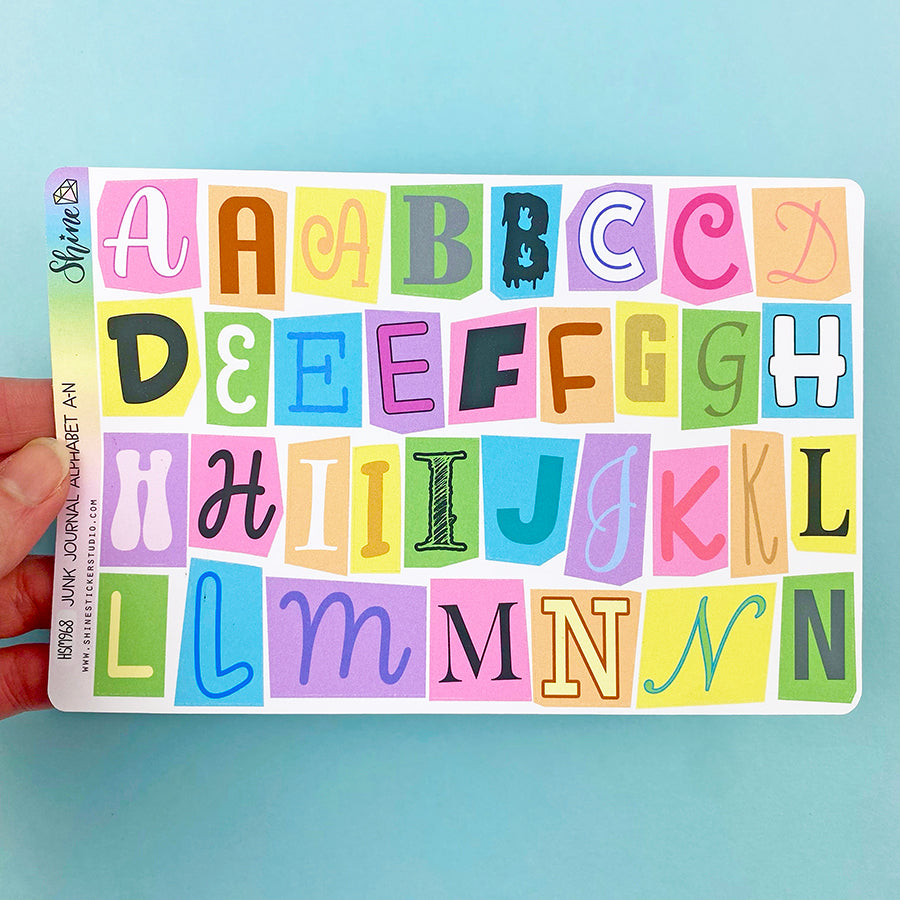 Shine
HSM968 JUNK JOURNAL ALPHABET A-N
WWW.SHINESTICKERSTUDIO.COM
A A A B B C C D
D E E E F F G G H
H H I I I J J K K L
L L M M N N N